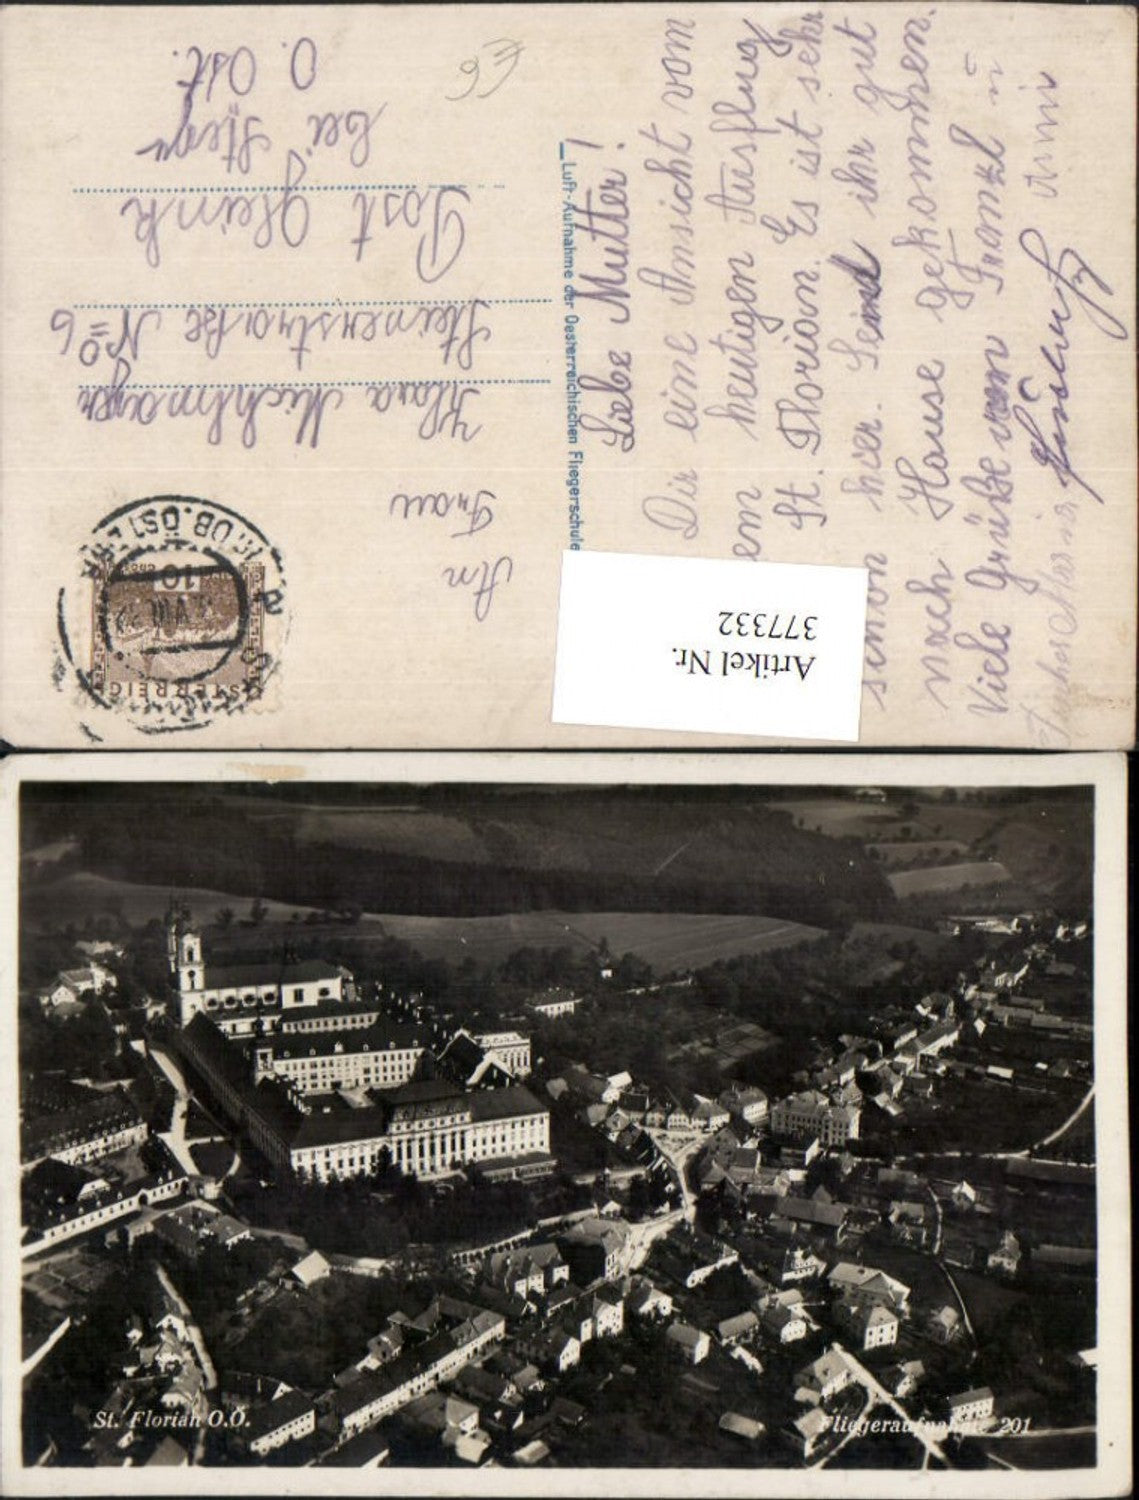 Liebe Mutter!
Dir eine Ansicht vom
heutigen Ausflug
St. Florian. Es ist sehr
hier. Seind ihr gut
nach Hause gekommen.
Viele Grüße von Franzl u
Mimi
Luft-Aufnahme der Oesterreichischen Fliegerschule
An
Frau
Klara Michlmayr
Steinerstraße No 6
Post Gleink
bei Steyr
O. Öst.
ÖSTERREICH
10
OB.ÖSTERR
Artikel Nr.
377332
St. Florian O.Ö.
Fliegeraufnahme 201